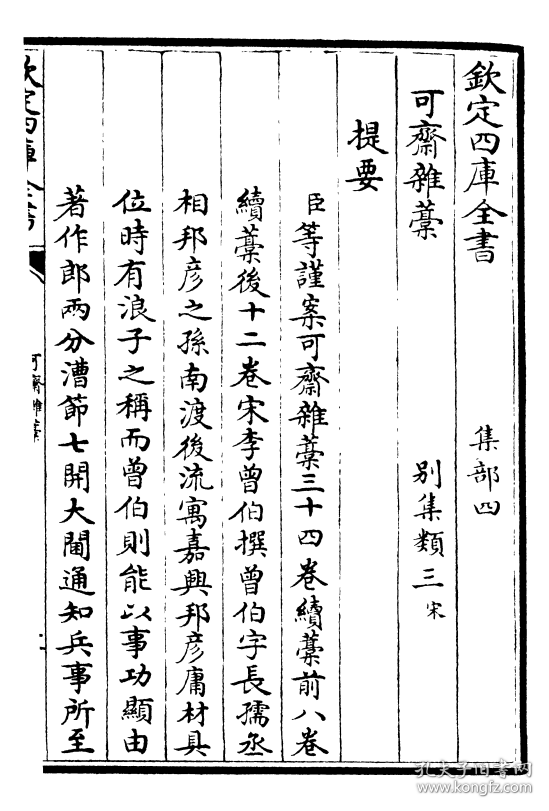 欽定四庫全書 集部四
可齋雜藁 別集類三 宋
提要
臣等謹案可齋雜藁三十四卷續藁前八卷
續藁後十二卷宋李曾伯撰曾伯字長孺丞
相邦彥之孫南渡後流寓嘉興邦彥庸材具
位時有浪子之稱而曾伯則能以事功顯由
著作郎兩分漕節七開大閫通知兵事所至
欽定四庫全書
可齋雜藁
孔夫子旧书网
www.kongfz.com